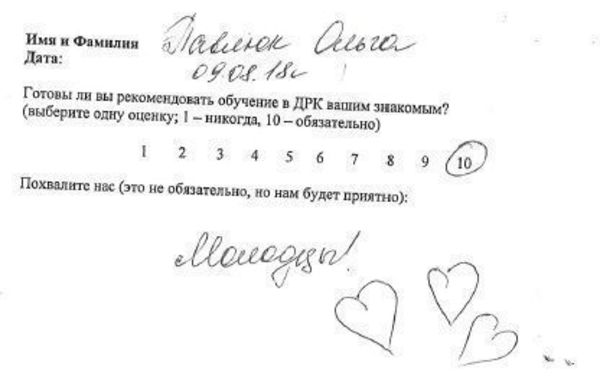 Имя и Фамилия Павлюк Ольга
Дата: 09.08.18г
Готовы ли вы рекомендовать обучение в ДРК вашим знакомым?
(выберите одну оценку; 1 – никогда, 10 – обязательно)
1 2 3 4 5 6 7 8 9 10
Похвалите нас (это не обязательно, но нам будет приятно):
Молодцы!